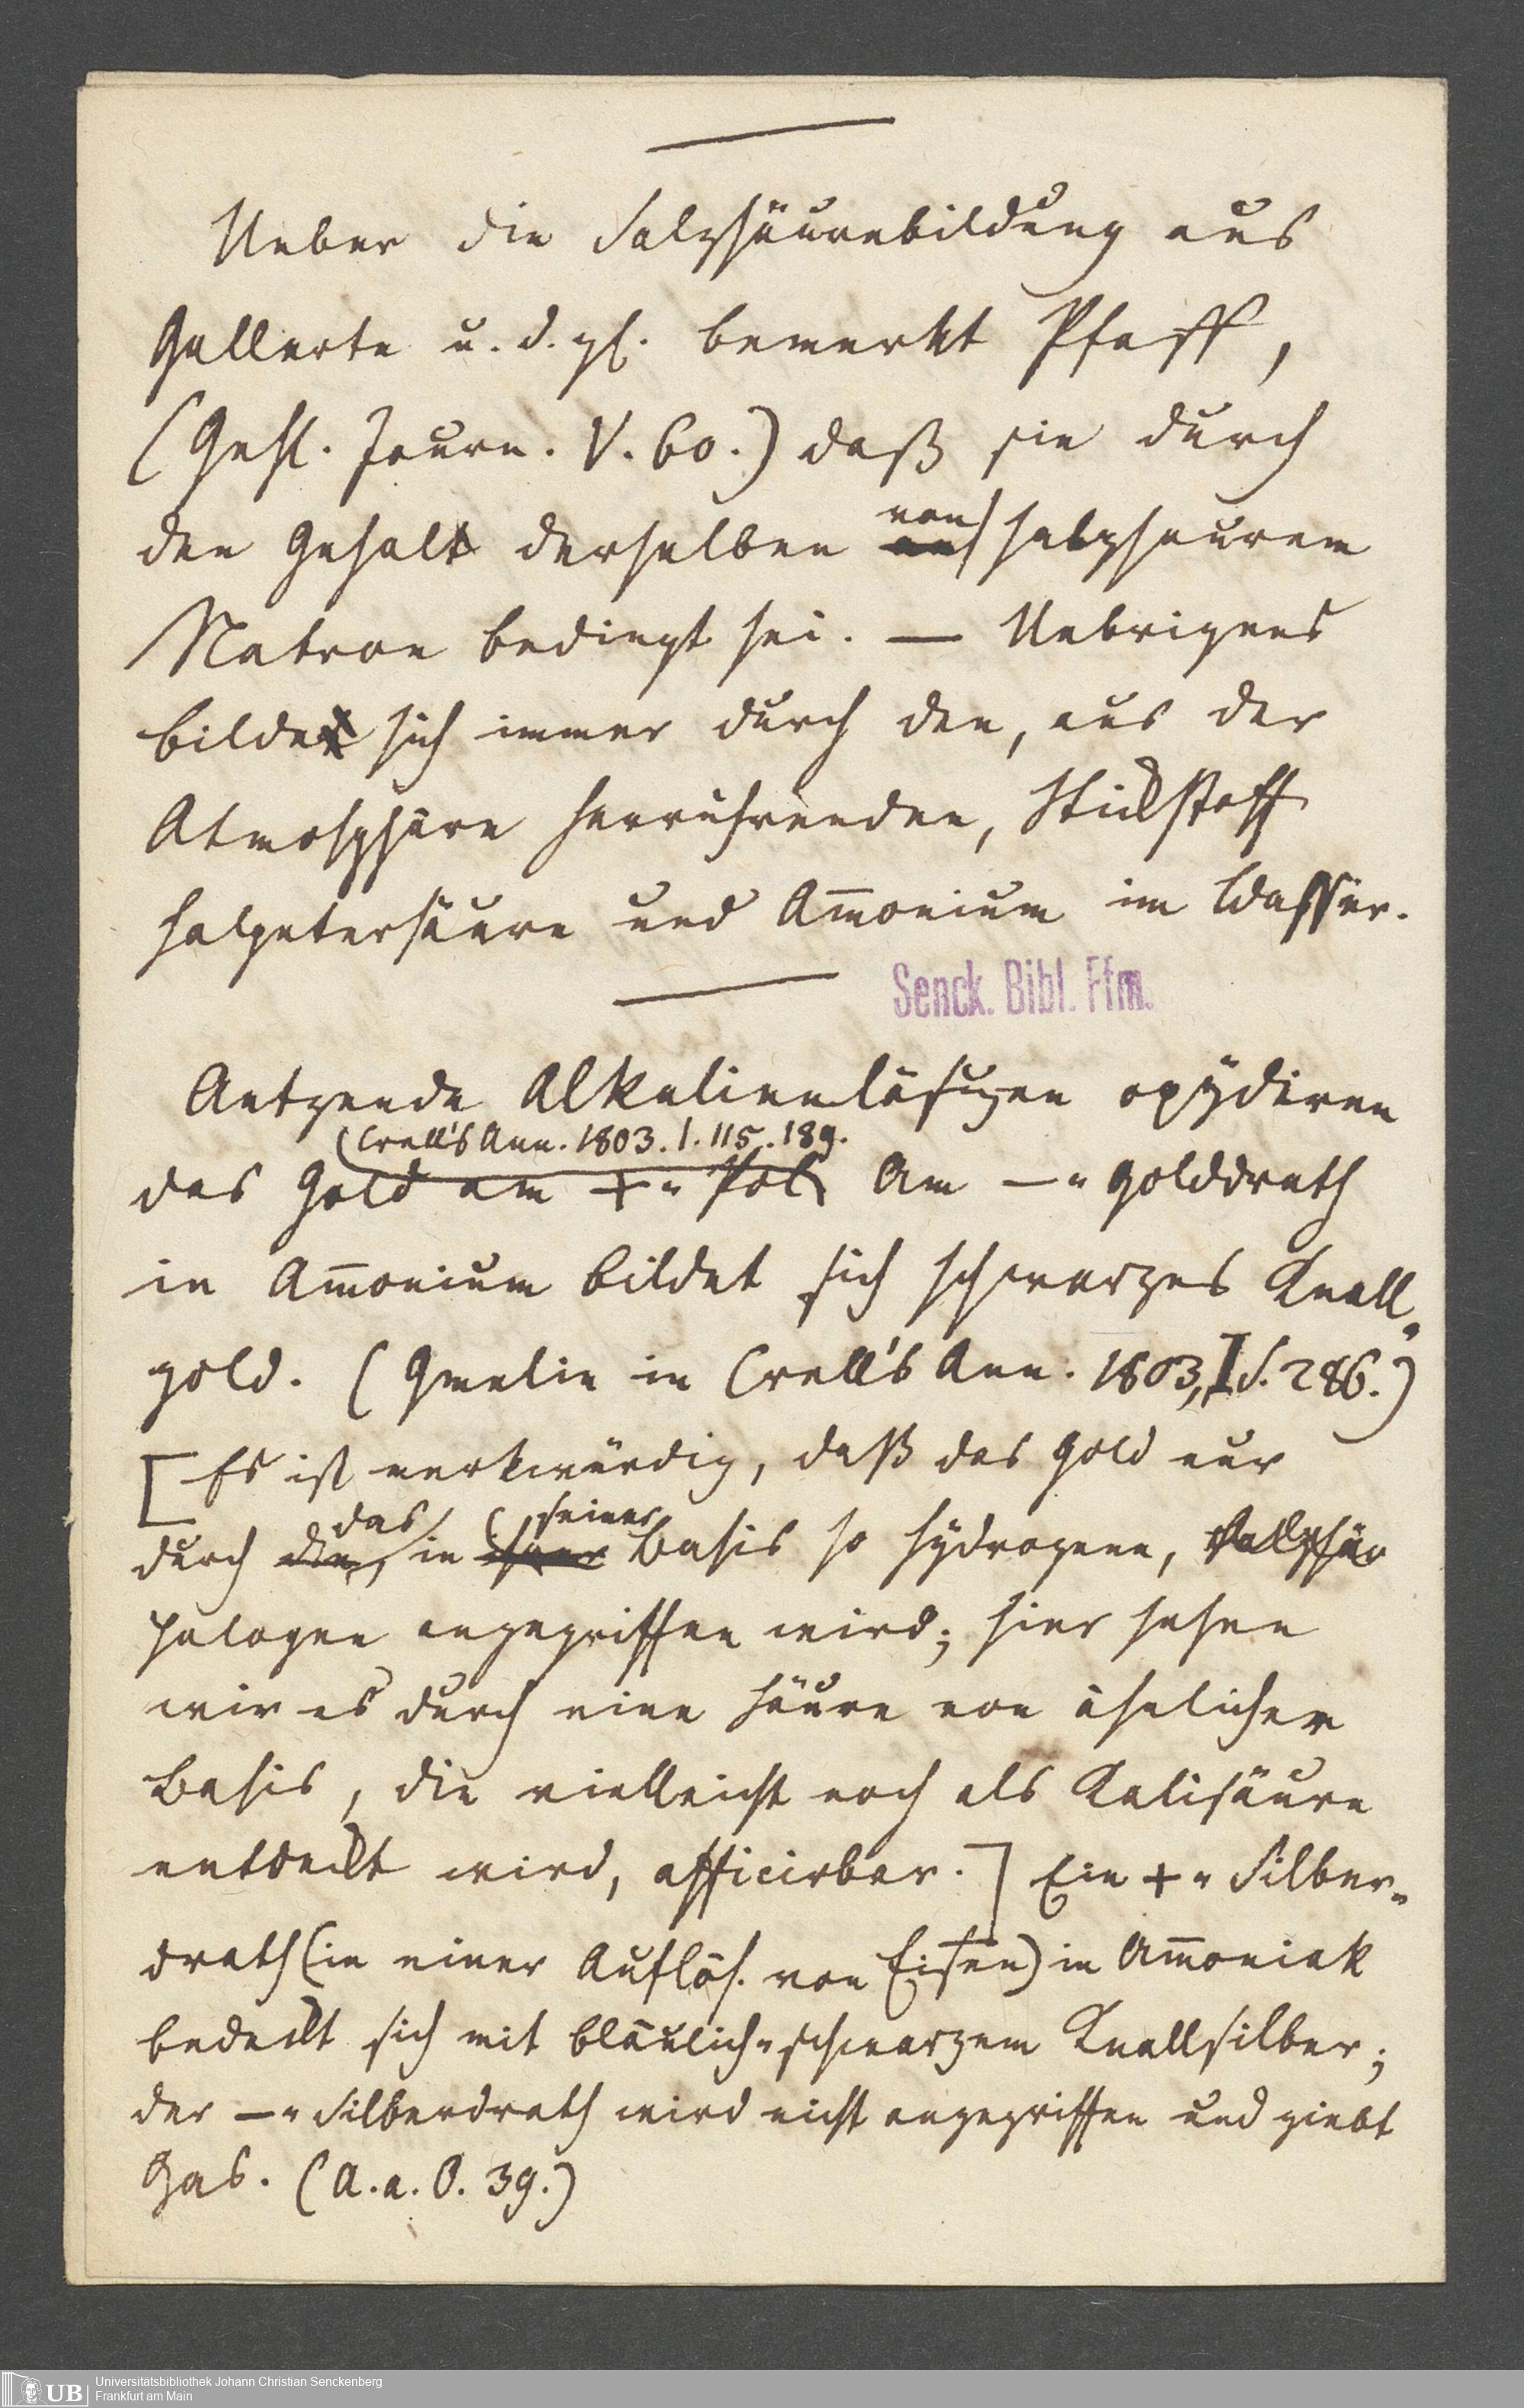 Ueber die Salzsäurebildung aus
Gallerte u. d. gl. bemerkt Pfaff,
(Gehl. Journ. V. 60.) daß sie durch
den Gehalt derselben an von salzsaurem
Natron bedingt sei. — Uebrigens
bilde sich immer durch den, aus der
Atmosphäre herrührenden, Stickstoff
Salpetersäure und Am̄onium im Wasser.
Senck. Bibl. Ffm.
Aetzende Alkalienlösungen oxydiren
(Crell's Ann. 1803. I. 115. 189.
das Gold am += Pol. Am —= Golddrath
in Am̄onium bildet sich schwarzes Knall=
gold. (Gmelin in Crell's Ann. 1803, I S. 286.)
[Es ist merkwürdig, daß das Gold nur
durch die, das, in ihrer seiner Basis so hydrogene,
Halogen angegriffen wird; hier sehen
wir es durch eine Säure von ähnlicher
Basis, die vielleicht noch als Kalisäure
entdeckt wird, afficirbar.] Ein += Silber=
drath (in einer Auflös. von Eisen) in Am̄oniak
bedeckt sich mit bläulich=schwarzem Knallsilber;
der —= Silberdrath wird nicht angegriffen und giebt
Gas. (A. a. O. 39.)
UB
Universitätsbibliothek Johann Christian Senckenberg
Frankfurt am Main